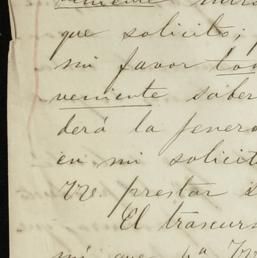 que solicito;
mi favor
veniente saber
derá la
en mi solicit
prestar
El trascurs
mi que